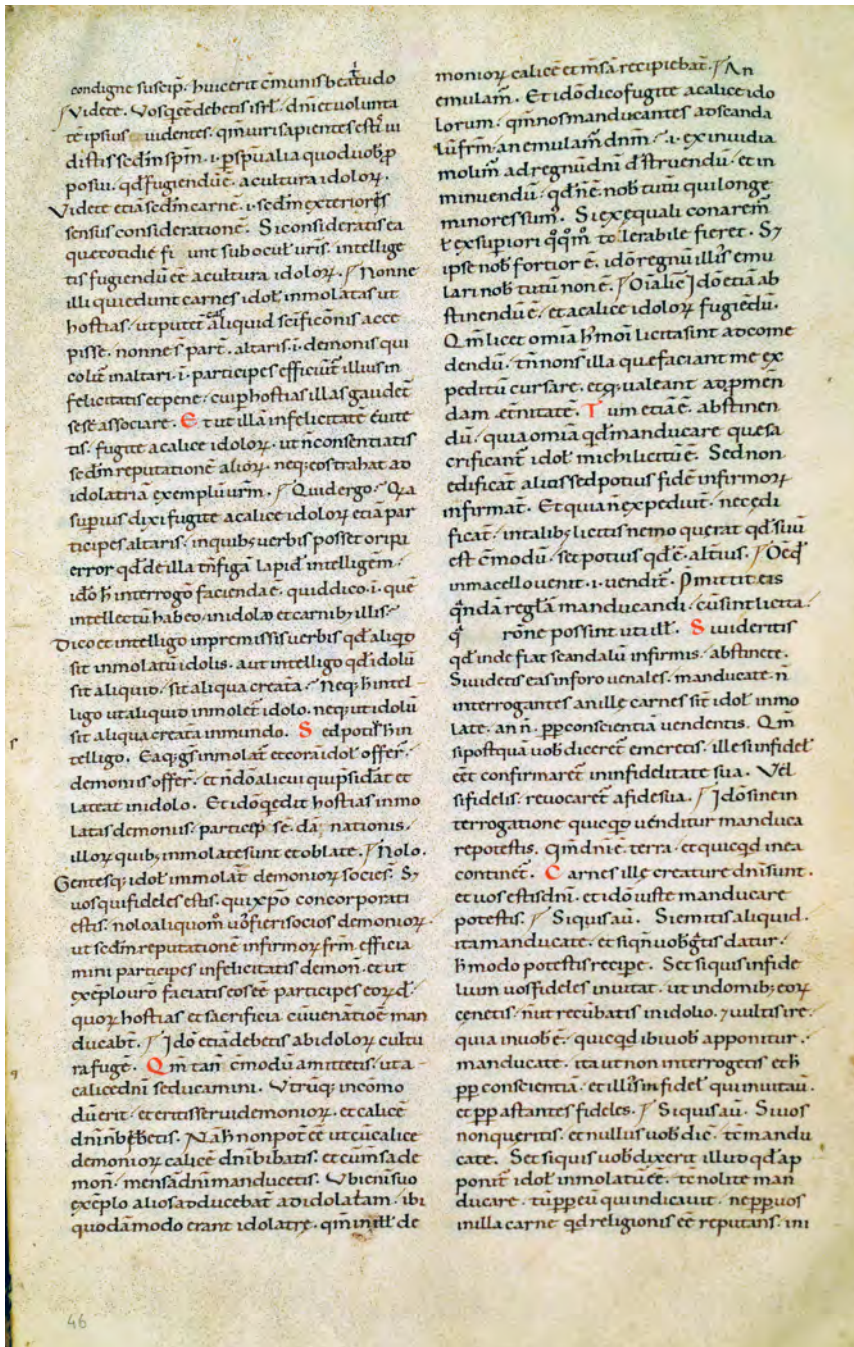 condigne suscip̄. huic erit c̄munis beatitudo
Videte. Vos qee debetis isrł. dn̄i et volunta
tē ipsius uidentes. qm̄ uiri sapientes estis ui
distis scd̄m sp̄m. i. p sp̄ualia quo duob; p
posui. qd̄ fugiendū ē. a cultura idoloꝝ.
Videte etiā scd̄m carnē. i. scd̄m exteriores
sensus consideratione. Si consideratis ea
que cotidie fi unt sub ocuł ur̄is. intellige
tis fugiendū eē a cultura idoloꝝ. Nonne
illi qui edunt carnes idoł inmolatas ut
hostias. ut putet aliquid sc̄ificōnis acce
pisse. nonne s̄ part̄. altaris. i. demonis qui
colit̄ in altari. i. participes efficiunt̄ illius in
felicitatis et pene. cui p hostias illas gaudet̄
sese associare. Et ut illā infelicitatē euite
tis. fugite a calice idoloꝝ. ut n̄ consentiatis
scd̄m reputationē alioꝝ. neq; eos trahat ad
idolatriā exemplū ur̄m. Quid ergo. Qia
superius dixi fugite a calice idoloꝝ etiā par
ticipes altaris. in quib; uerbis posset oriri
error qd̄ de illa tn̄ figā lapid̄ intelligem̄.
idō h̄ interrogo facienda ē. quid dico. i. quē
intellectū habeo. in idolo et carnib; illis.
Dico et intelligo in premissis uerbis qd̄ aliqd
sit inmolatū idolis. aut intelligo qd̄ idolū
sit aliquid. sit aliqua creata. Neq; h̄ intel
ligo ut aliquid inmolet̄ idolo. neq; ut idolū
sit aliqua creata in mundo. Sed poti9 h̄ in
telligo. Ea q; gs̄ inmolat̄ et corā idoł offer̄.
demoniis offer̄. et n̄ dō alicui qui p̄sidāt et
lateat in idolo. Et idō q edit hostias inmo
latas demoniis. particep̄s sē. dā, nationis.
illoꝝ quib; inmolate sunt et oblate. Nolo.
Gentes q; idoł immolat̄ demonioꝝ socies̄. S;
uos qui fideles estis. qui xpō concorporati
estis. nolo aliquom̄ uōs fieri socios demonioꝝ.
ut scd̄m reputationē infirmoꝝ frm̄. efficia
mini participes infelicitatis demon̄. et ut
exēplo uro faciatis eos eē participes eoꝝ d.
quoꝝ hostias et sacrificia cū uenatioē man
ducabt̄. Idō etiā debetis ab idoloꝝ cultu
ra fuge. Qm̄ tan̄ c̄modū amittetis. ut a
calice dn̄i seducamini. Vtrūq; incōmo
dū erit. et eritis serui demonioꝝ. et calicē
dn̄i n̄ bibetis. Nā h̄ non pot̄ eē ut cū calice
demonioꝝ calicē dn̄i bibatis. et cū msa de
mon̄. mensā dn̄i manducetis. Vbi enī suo
exēplo alios adducebat̄ ad idolat̄am. ibi
quodā modo erant idolatre. qm̄ in illł de
monioꝝ calicē et m̄sā recipiebat̄. An
emulam̄. Et idō dico fugite a calice ido
lorum. qm̄ nos manducantes ad scanda
lū frm̄. an emulam̄ dn̄m. i. ex inuidia
molim̄ ad regnū dn̄i d̄struendū. et in
minuendū. qd̄ n̄ ē. nob̄ tutū qui longe
minores sum̄. Si ex equali conarem̄
ł ex superiori qͦqͦm̄ tolerabile fieret. S;
ipse nob̄ fortior ē. idō regnū illi9 emu
lari nob̄ tutū non ē. Oīa lic̄ Idō etiā ab
stinendū ē. et a calice idoloꝝ fugiēdū.
Qm̄ licet omia h̄moi licita sint ad come
dendū. tn̄ non s̄ illa que faciant me ex
peditū cursare. et q; ualeant ad pmen
dam et̄nitatē. Tum etiā ē. abstinen
dū. quia omia qd̄ manducare que sa
crificant̄ idoł michi licitū ē. Sed non
edificat alios sed potius fidē infirmoꝝ
infirmat̄. Et quia n̄ expediunt̄. nec edi
ficat̄. in talib; licitis nemo querat qd̄ suū
est c̄modū. set potius qd̄ ē. alt̄ius. Oē qd̄
in macello uenit. i. uendit̄. Pmittit eis
qn̄dā reglā manducandi. cū sint licita.
q̄ rōne possint uti ill. Si uideritis
qd̄ inde fiat scandalū infirmis. abstinete.
Si uidetis eas in foro uenales. manducate. n̄
interrogantes an ille carnes sīt idoł inmo
late. an n̄. pp̄ conscientiā uendentis. Qm̄
si postquā uob̄ diceret̄ emeretis. ille si infidel̄
eēt confirmaret̄ in infidelitate sua. Vel
si fidelis. reuocaret̄ a fide sua. Idō sine in
terrogatione quicqd uenditur manduca
re potestis. qm̄ dn̄i ē. terra. et quicqd in ea
continet̄. Carnes ille creature dn̄i sunt.
et uos estis dn̄i. et idō iuste manducare
potestis. Si quis aū. Si emitis aliquid.
ita manducate. et si qn̄ uob̄ gt̄is datur.
h̄ modo potestis recipe. Set si quis infide
lium uos fideles inuitat. ut in domib; eoꝝ
cenetis. n̄ ut recūbatis in idolio. ⁊ uultis ire.
quia in uob̄ ē. quicqd ibi uob̄ apponitur.
manducate. ita ut non interrogetis et h̄
pp̄ conscientia. et illi9 infidel̄ qui inuitau̅.
et pp̄ astantes fideles. Si quis aū. Si uos
non queritis. et nullus uob̄ dic̄. tc̄ mandu
cate. Set si quis uob̄ dixerit illud qd̄ ap
ponit̄ idoł inmolatū eē. tc̄ nolite man
ducare. tū pp̄ eū qui indicauit. ne pp̄ uos
in illa carne qd̄ religionis eē reputans. ini
46